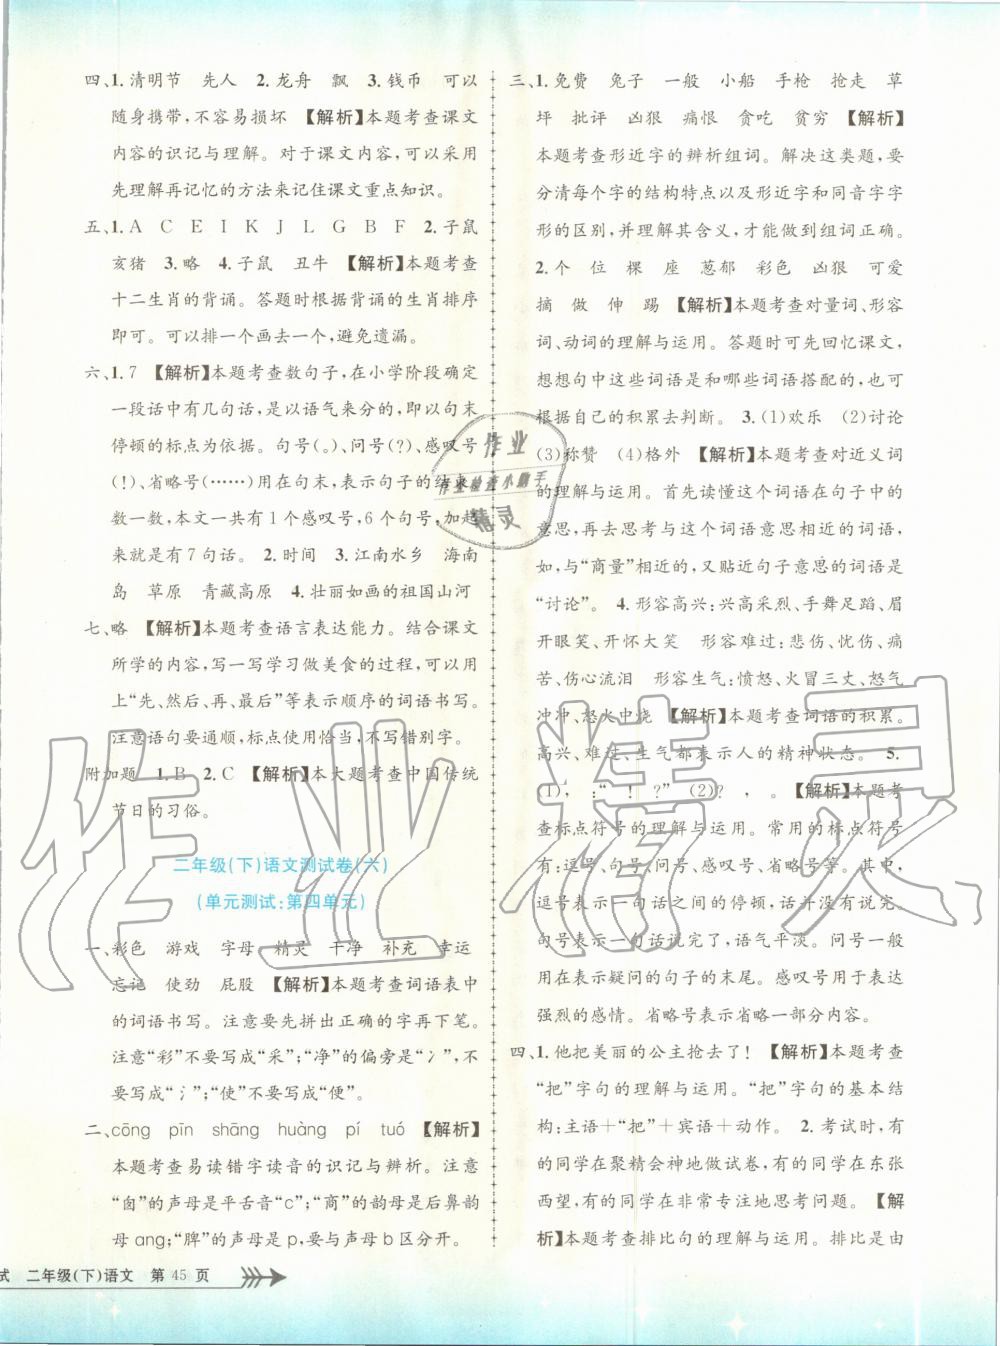 四、1.清明节　先人　2.龙舟　飘　3.钱币　可以
随身携带,不容易损坏　【解析】本题考查课文
内容的识记与理解。对于课文内容,可以采用
先理解再记忆的方法来记住课文重点知识。
五、1.A　C　E　I　K　J　L　G　B　F　2.子鼠
亥猪　3.略　4.子鼠　丑牛　【解析】本题考查
十二生肖的背诵。答题时根据背诵的生肖排序
即可。可以排一个画去一个,避免遗漏。
六、1.7　【解析】本题考查数句子,在小学阶段确定
一段话中有几句话,是以语气来分的,即以句末
停顿的标点为依据。句号(。)、问号(?)、感叹号
(!)、省略号(……)用在句末,表示句子的结束。
数一数,本文一共有1个感叹号,6个句号,加起
来就是有7句话。2.时间　3.江南水乡　海南
岛　草原　青藏高原　4.壮丽如画的祖国山河
七、略　【解析】本题考查语言表达能力。结合课文
所学的内容,写一写学习做美食的过程,可以用
上“先、然后、再、最后”等表示顺序的词语书写。
注意语句要通顺,标点使用恰当,不写错别字。
附加题　1.B　2.C　【解析】本大题考查中国传统
节日的习俗。
二年级(下)语文测试卷(六)
(单元测试:第四单元)
一、彩色　游戏　字母　精灵　干净　补充　幸运
忘记　使劲　屁股　【解析】本题考查词语表中
的词语书写。注意要先拼出正确的字再下笔。
注意“彩”不要写成“采”;“净”的偏旁是“冫”,不
要写成“氵”;“使”不要写成“便”。
二、cōng　pīn　shāng　huàng　pí　tuó　【解析】
本题考查易读错字读音的识记与辨析。注意
“囱”的声母是平舌音“c”;“商”的韵母是后鼻韵
母ang;“脾”的声母是p,要与b区分开。
三、1.免费　兔子　一般　小船　手枪　抢走　草
坪　批评　凶狠　痛恨　贪吃　贫穷　【解析】
本题考查形近字的辨析组词。解决这类题,要
分清每个字的结构特点以及形近字和同音字字
形的区别,并理解其含义,才能做到组词正确。
2.个　位　棵　座　葱郁　彩色　凶狠　可爱
摘　做　伸　踢　【解析】本题考查对量词、形容
词、动词的理解与运用。答题时可先回忆课文,
想想句中这些词语是和哪些词语搭配的,也可
根据自己的积累去判断。3.(1)欢乐　(2)讨论
(3)称赞　(4)格外　【解析】本题考查对近义词
的理解与运用。首先读懂这个词语在句子中的
意思,再去思考与这个词语意思相近的词语,
如,与“商量”相近的,又贴近句子意思的词语是
“讨论”。4.形容高兴:兴高采烈、手舞足蹈、眉
开眼笑、开怀大笑　形容难过:悲伤、忧伤、痛
苦、伤心流泪　形容生气:愤怒、火冒三丈、怒气
冲冲、怒火中烧　【解析】本题考查词语的积累。
高兴、难过、生气都表示人的精神状态。5.
(1),　:“　!　?”　(2)?　,　。【解析】本题考
查标点符号的理解与运用。常用的标点符号
有:逗号、句号、问号、感叹号、省略号等。其中,
逗号表示一句话之间的停顿,话并没有说完。
句号表示一句话说完了,语气平淡。问号一般
用在表示疑问的句子的末尾。感叹号用于表达
强烈的感情。省略号表示省略一部分内容。
四、1.他把美丽的公主抢去了!　【解析】本题考查
“把”字句的理解与运用。“把”字句的基本结
构:主语+“把”+宾语+动作。2.考试时,有
的同学在聚精会神地做试卷,有的同学在东张
西望,有的同学在非常专注地思考问题。【解
析】本题考查排比句的理解与运用。排比是由
试　二年级(下)语文　第45页
作业
作业检查小助手
精灵
作业精灵